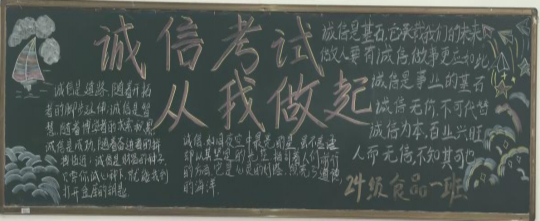 诚信考试
从我做起
诚信是道路,随着开拓
者的脚步延伸;诚信是智
慧,随着博学者的求索积累;
诚信是成功,随着奋进者的拼
搏临近;诚信是财富的种子,
只要你诚心种下,就能找到
打开金库的钥匙.
诚信,如同夜空中最亮的星,
它是心灵的
的海洋.
诚信是基石,它承载我们的未来
做人要有诚信,做事更应如此
诚信是事业的基石
诚信无价,不可代替
诚信为本,百业兴旺
人而无信,不知其可也
24级食品一班